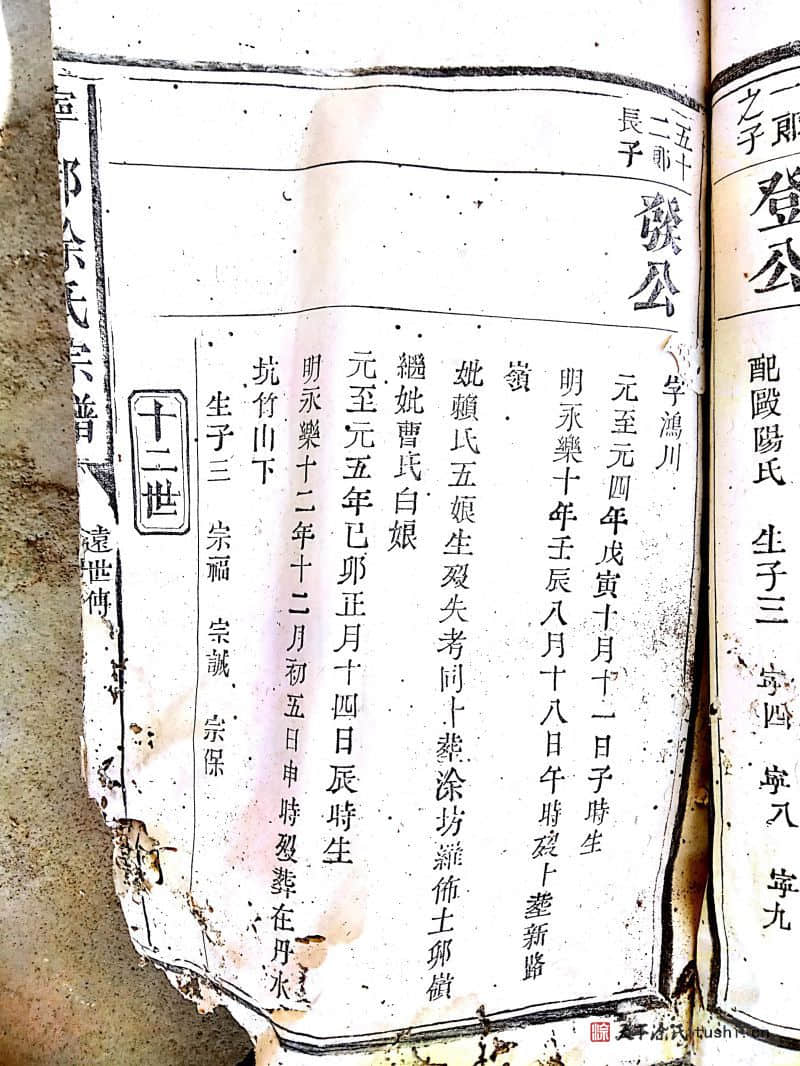 一郎
之子
登公
配歐陽氏 生子三 寜四 寜八 寜九
五十
二郎
長子
發公
字鴻川
元至元四年戊寅十月十一日子時生
明永樂十年壬辰八月十八日午時歿卜塟新路
嶺
妣賴氏五娘生歿失考同卜塟涂坊羅佈土邨嶺
繼妣曹氏白娘
元至元五年己卯正月十四日辰時生
明永樂十二年十二月初五日申時歿葬在丹水
坑竹山下
生子三 宗福 宗誠 宗保
十二世
涂氏宗譜
遠世傳
tushi.cn